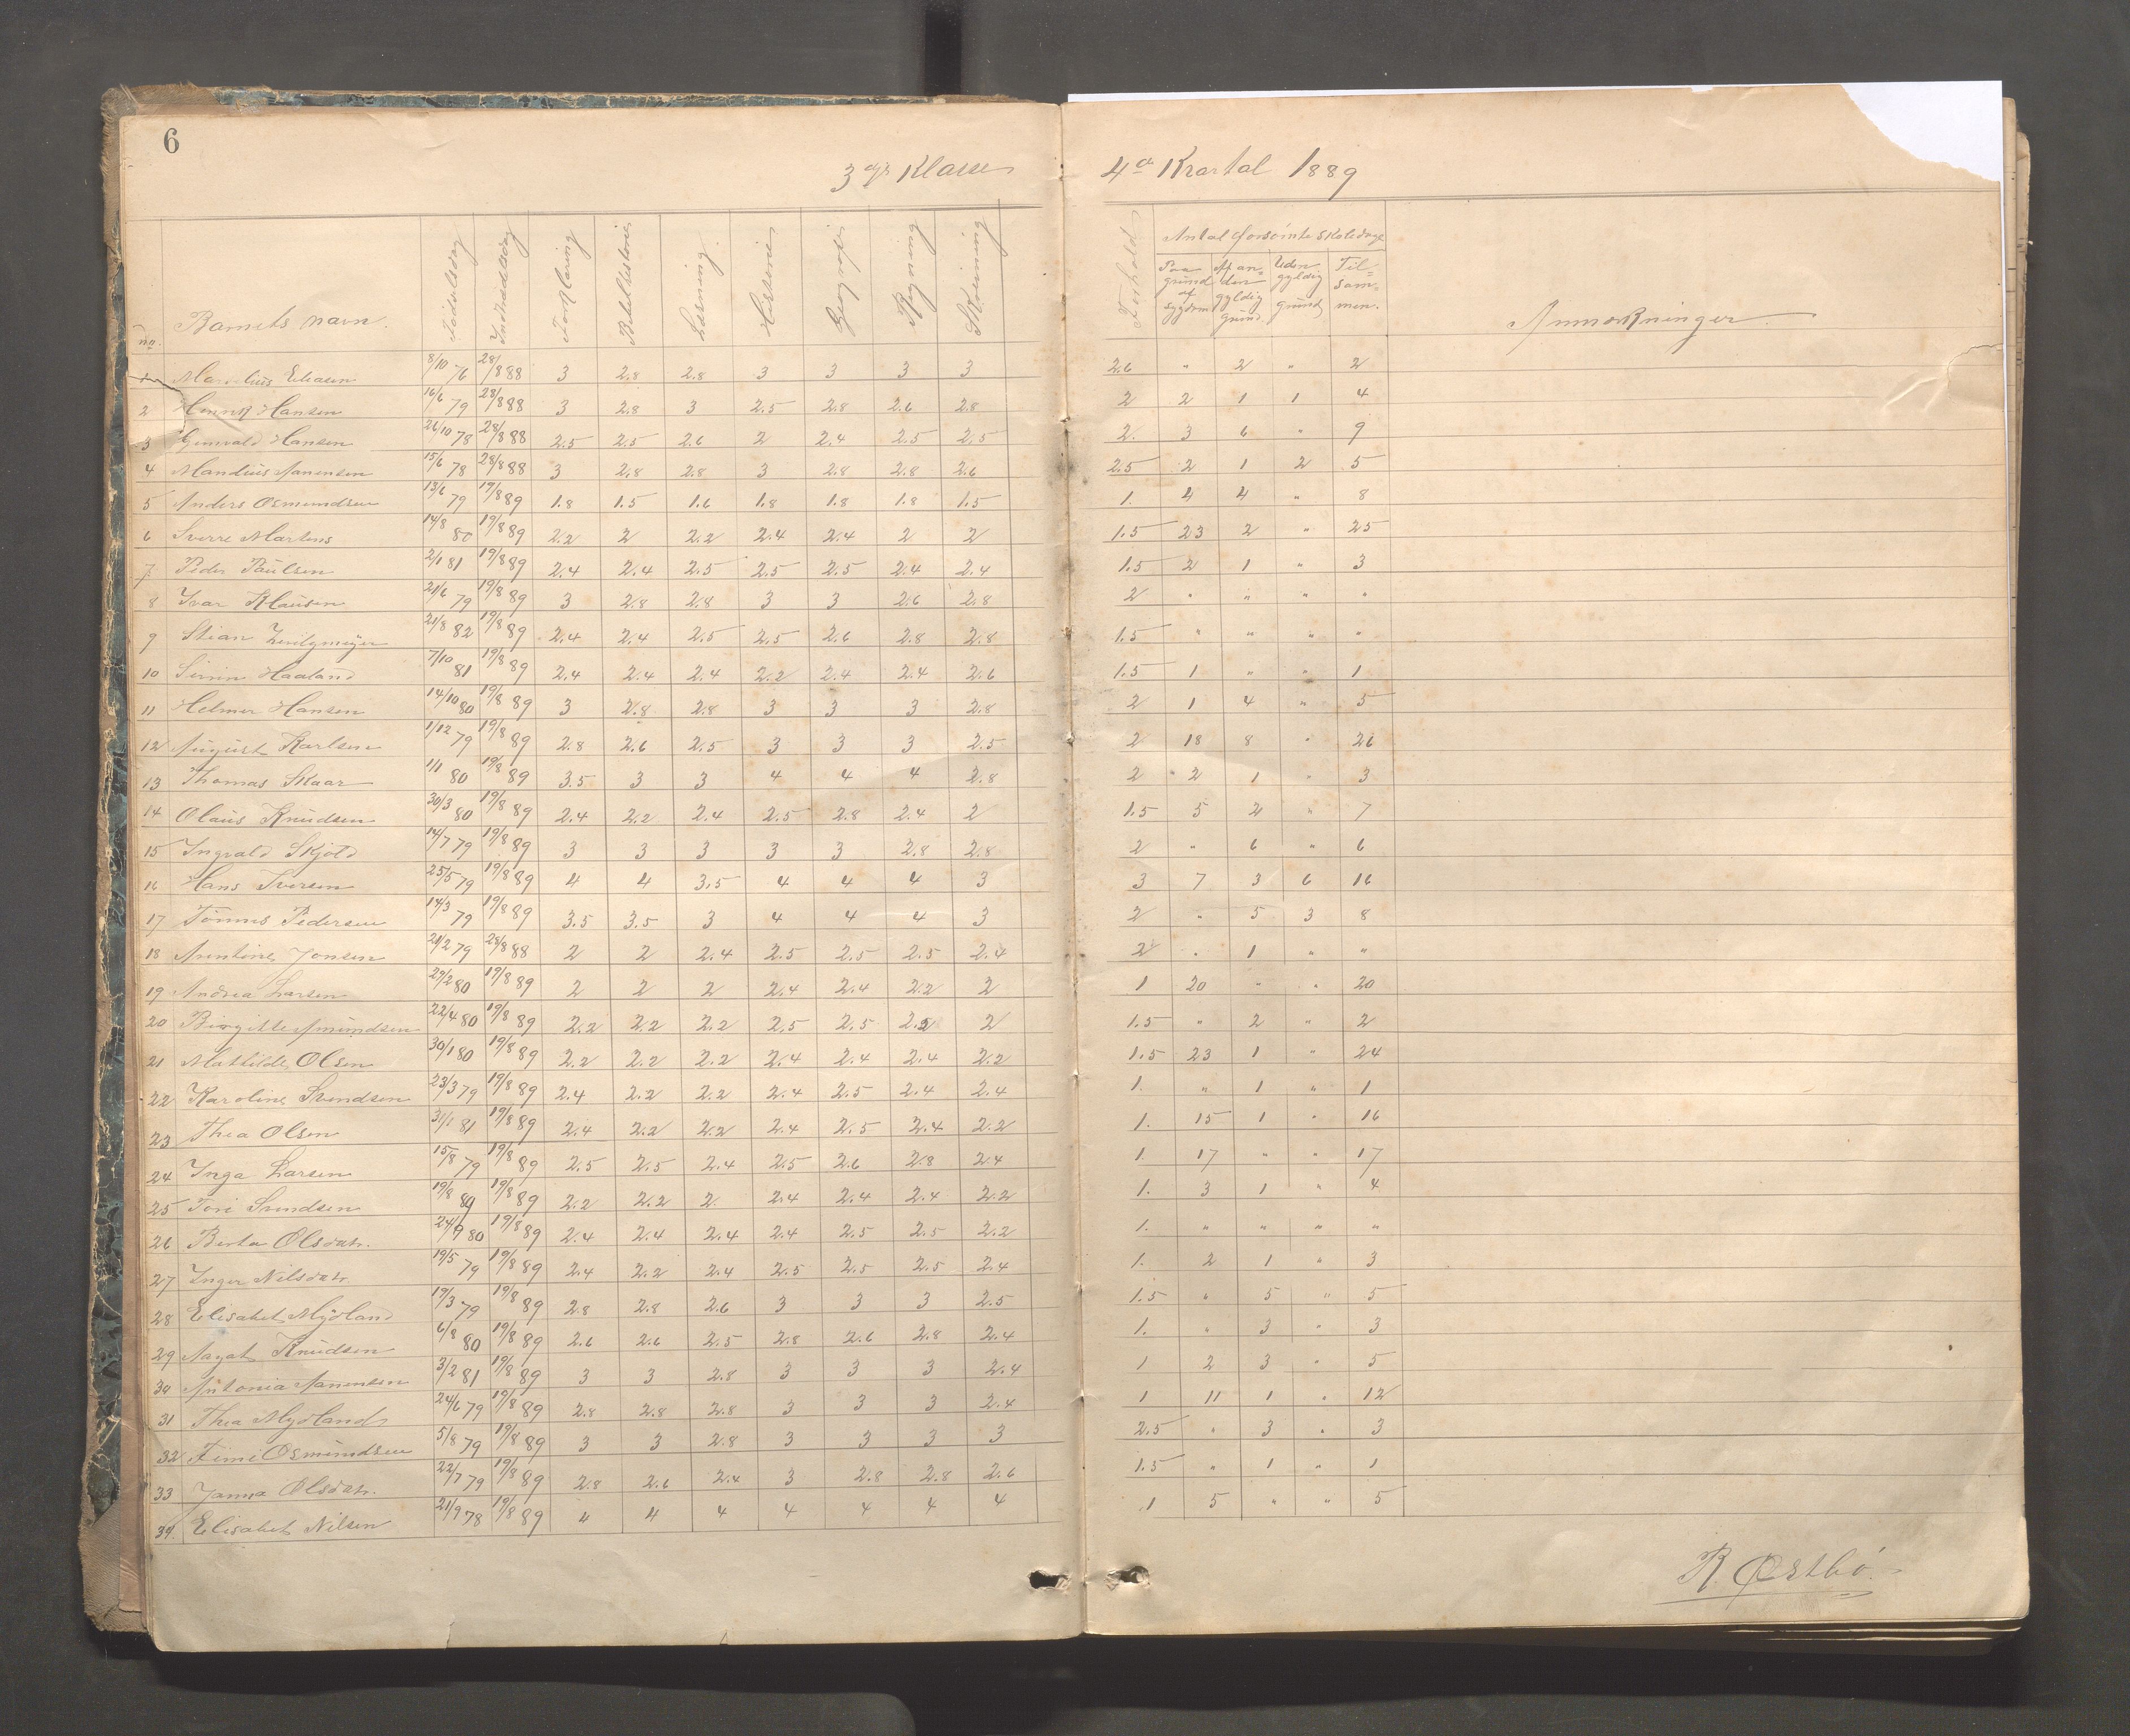 6
3die Klasse
4de Kvartal 1889
no. Barnets navn. Fødselsdag Indtrædelsdag Forklaring Bibelhistorie Læsning Historie Geografi Regning Skrivning Forhold
Antal forsømte skoledage
Paa grund af sygdom Af an= den gyldig grund Uden gyldig grund Til= sam= men. Anmærkninger
1 Marselius Eliasen 8/10 76 28/8 88 3 2.8 2.8 3 3 3 3 2.6 " 2 " 2
2 Henrik Hansen 16/6 79 28/8 88 3 2.8 3 2.5 2.8 2.6 2.8 2 2 1 1 4
3 Gunvald Hansen 26/10 78 28/8 88 2.5 2.5 2.6 2 2.4 2.5 2.5 2. 3 6 " 9
4 Mandius Aanensen 15/6 78 28/8 88 3 2.8 2.8 3 2.8 2.8 2.6 2.5 2 1 2 5
5 Anders Osmundsen 13/6 79 19/8 89 1.8 1.5 1.6 1.8 1.8 1.8 1.5 1. 4 4 " 8
6 Sverre Martens 14/8 80 19/8 89 2.2 2 2.2 2.4 2.4 2 2 1.5 23 2 " 25
7 Peder Paulsen 2/1 81 19/8 89 2.4 2.4 2.5 2.5 2.5 2.4 2.4 1.5 2 1 " 3
8 Ivar Klausen 21/6 79 19/8 89 3 2.8 2.8 3 3 2.6 2.8 2 " " " "
9 Stian 21/8 82 19/8 89 2.4 2.4 2.5 2.5 2.6 2.8 2.8 1.5 " " " "
10 Sirin Haaland 7/10 81 19/8 89 2.4 2.4 2.4 2.2 2.4 2.4 2.6 1.5 1 " " 1
11 Helmer Hansen 14/10 80 19/8 89 3 2.8 2.8 3 3 3 2.8 2 1 4 " 5
12 August Karlsen 1/12 79 19/8 89 2.8 2.6 2.5 3 3 3 2.5 2 18 8 " 26
13 Thomas Skaar 1/1 80 19/8 89 3.5 3 3 4 4 4 2.8 2 2 1 " 3
14 Olaus Knudsen 30/3 80 19/8 89 2.4 2.2 2.4 2.5 2.8 2.4 2 1.5 5 2 " 7
15 Ingvald Skjold 14/7 79 19/8 89 3 3 3 3 3 2.8 2.8 2 " 6 " 6
16 Hans Iversen 25/5 79 19/8 89 4 4 3.5 4 4 4 3 3 7 3 6 16
17 Tønnes Pedersen 14/3 79 19/8 89 3.5 3.5 3 4 4 4 3 2 " 5 3 8
18 Arentine Jonsen 21/2 79 28/8 88 2 2 2.4 2.5 2.5 2.5 2.4 2 " 1 " "
19 Andrea Larsen 29/2 80 19/8 89 2 2 2 2.4 2.4 2.2 2 1 20 " " 20
20 Birgitte Amundsen 22/4 80 19/8 89 2.2 2.2 2.2 2.5 2.5 2.2 2 1.5 " 2 " 2
21 Mathilde Olsen 30/1 80 19/8 89 2.2 2.2 2.2 2.4 2.4 2.4 2.2 1.5 23 1 " 24
22 Karoline Svendsen 23/3 79 19/8 89 2.4 2.2 2.2 2.4 2.5 2.4 2.4 1. " 1 " 1
23 Thea Olsen 31/1 81 19/8 89 2.4 2.2 2.2 2.4 2.5 2.4 2.2 1. 15 1 " 16
24 Inga Larsen 15/8 79 19/8 89 2.5 2.5 2.4 2.5 2.6 2.8 2.4 1. 17 " " 17
25 Tori Svendsen 19/8 19/8 89 2.2 2.2 2. 2.4 2.4 2.4 2.2 1. 3 1 " 4
26 Berta Olsdatr. 24/9 80 19/8 89 2.4 2.4 2.4 2.4 2.5 2.5 2.2 1. " " " "
27 Inger Nilsdatr 19/5 79 19/8 89 2.4 2.2 2.4 2.5 2.5 2.5 2.4 1. 2 1 " 3
28 Elisabet Mydland 19/3 79 19/8 89 2.8 2.8 2.6 3 3 3 2.5 1.5 " 5 " 5
29 Aagat Knudsen 6/8 80 19/8 89 2.6 2.6 2.5 2.8 2.6 2.8 2.4 1. " 3 " 3
30 Antonia Aanensen 3/2 81 19/8 89 3 3 2.8 3 3 3 2.4 1 2 3 " 5
31 Thea Mydland 24/6 79 19/8 89 2.8 2.8 2.8 3 3 3 2.4 1 11 1 " 12
32 Fimi Osmundsen 5/8 79 19/8 89 3 3 2.8 3 3 3 3 2.5 " 3 " 3
33 Janna Olsdatr. 22/7 79 19/8 89 2.8 2.6 2.4 3 2.8 2.8 2.6 1.5 " 1 " 1
34. Elisabet Nilsen 21/9 78 19/8 89 4 4 4 4 4 4 4 1 5 " " 5
R. Østbø.